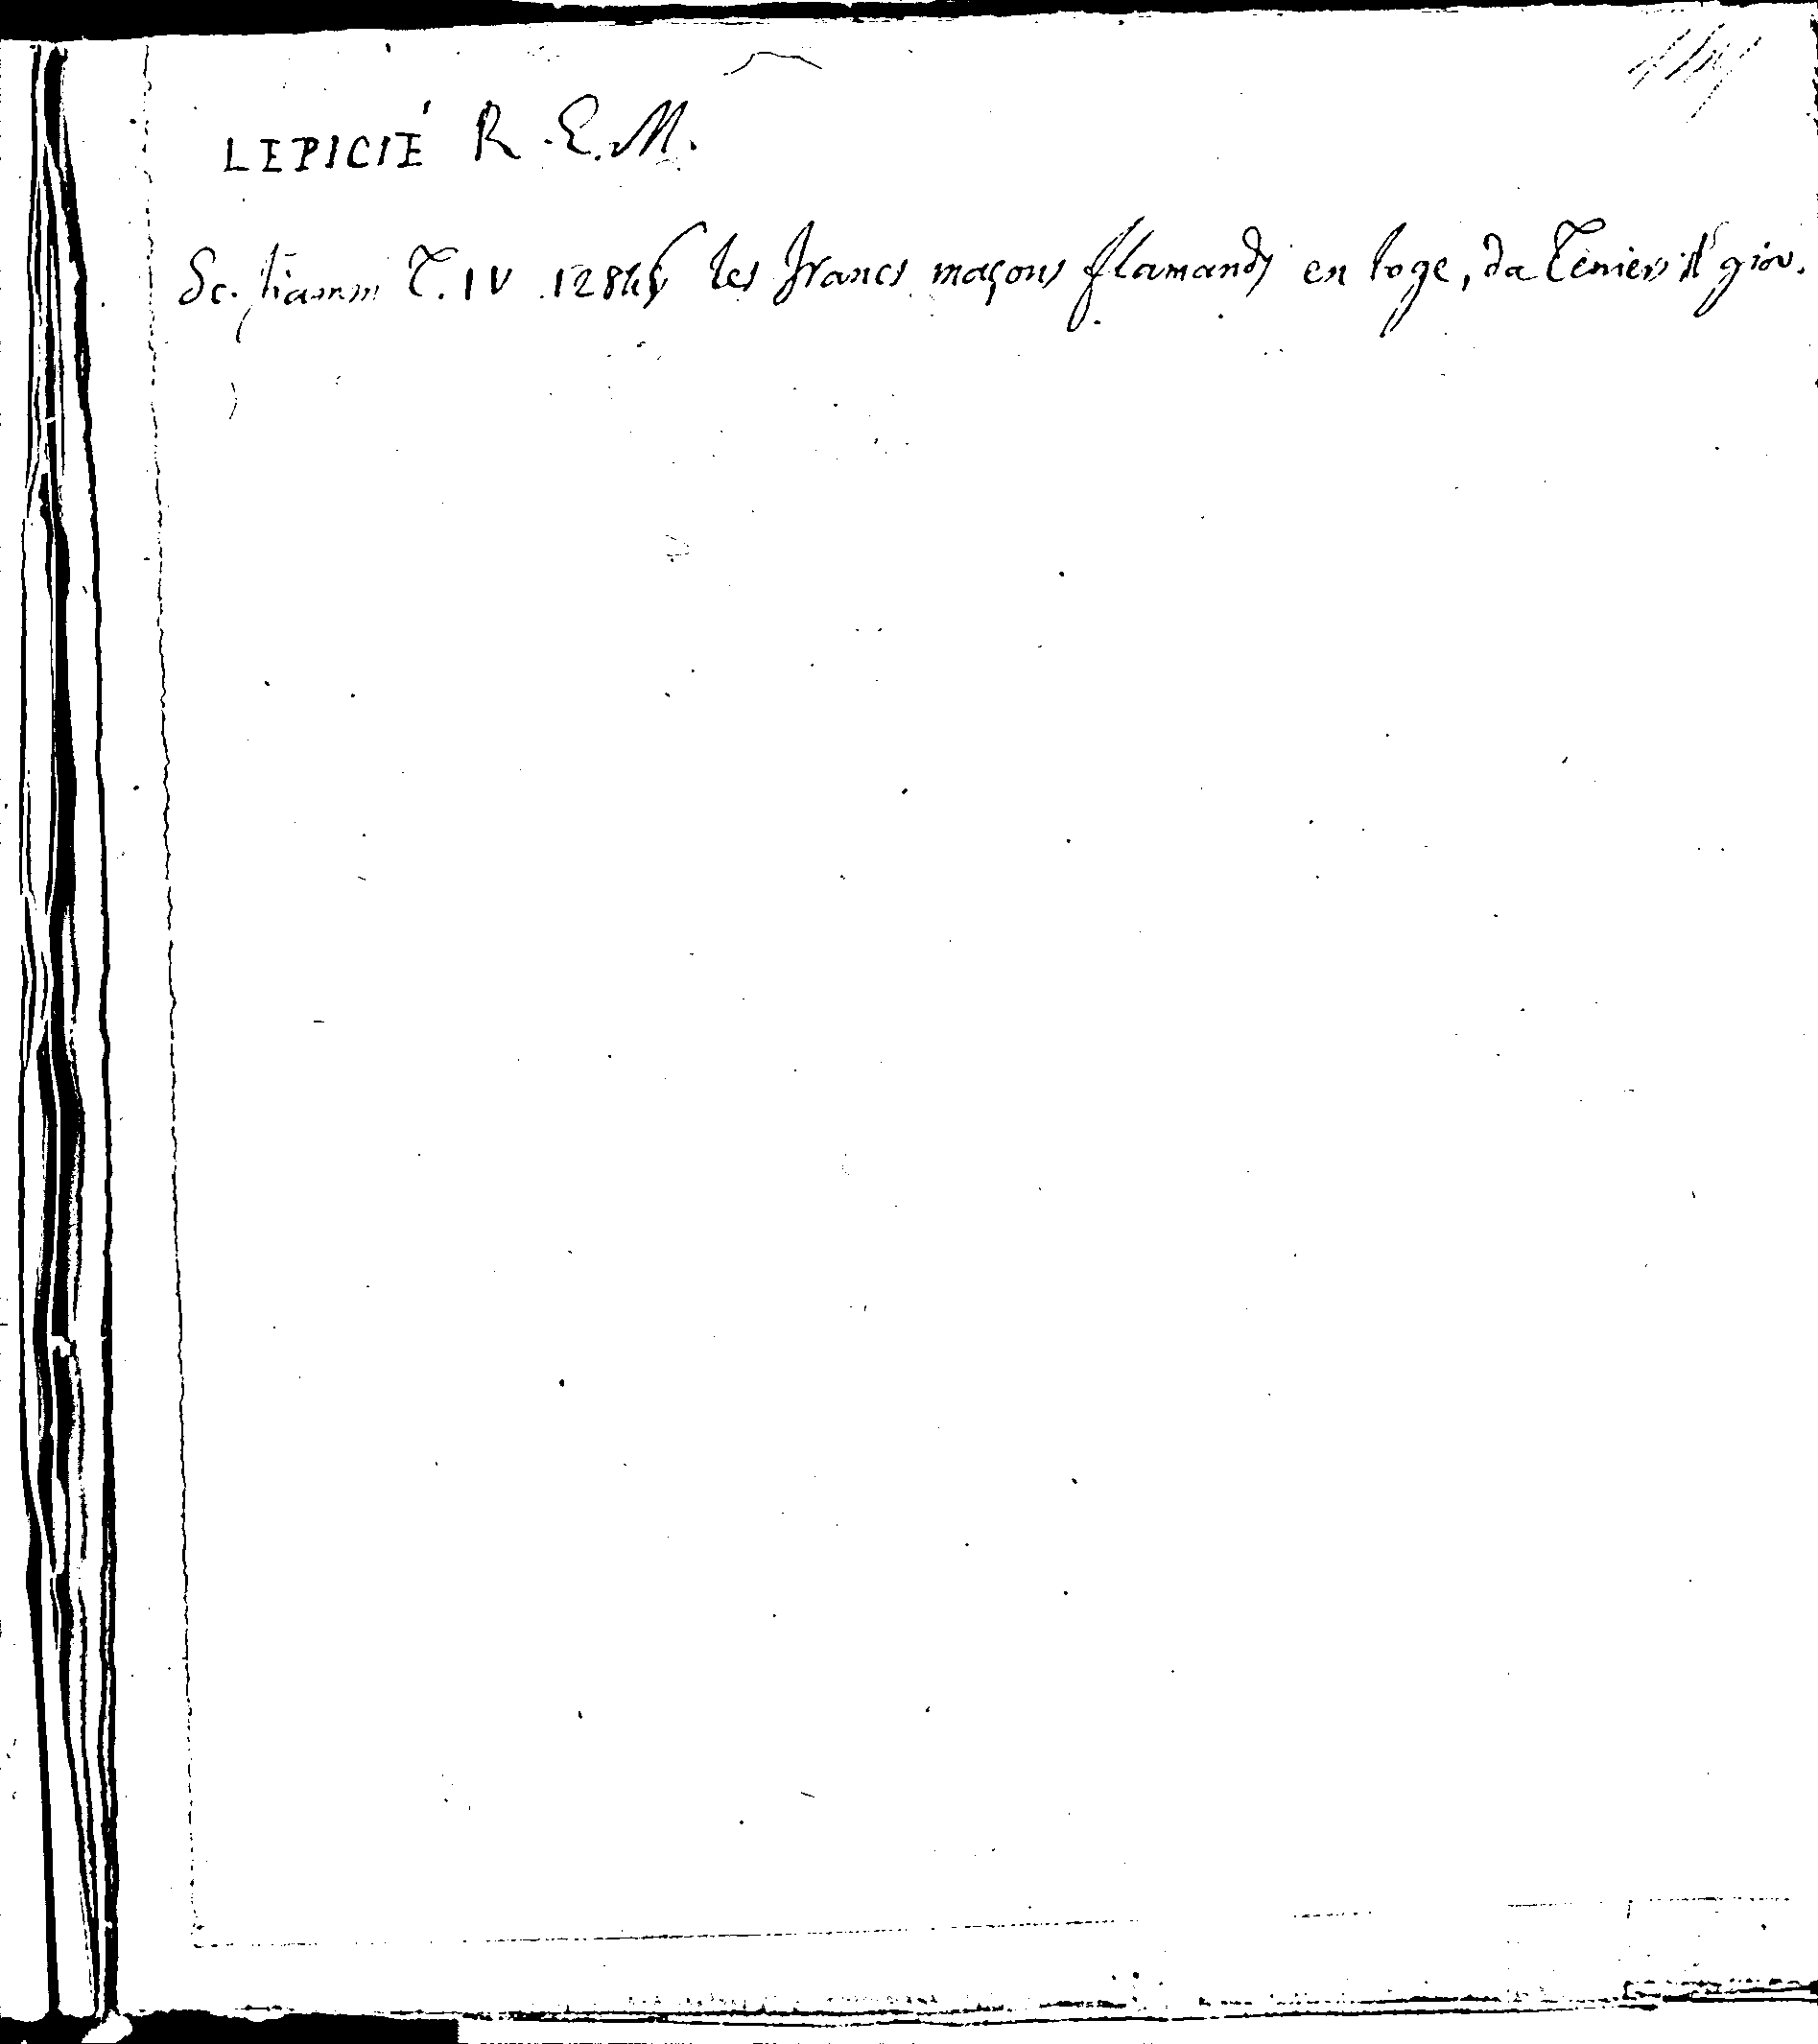 LEPICIÉ R. E. M.
Sc. fiamm T. IV les francs maçons flamands en loge, da Teniers il giov.